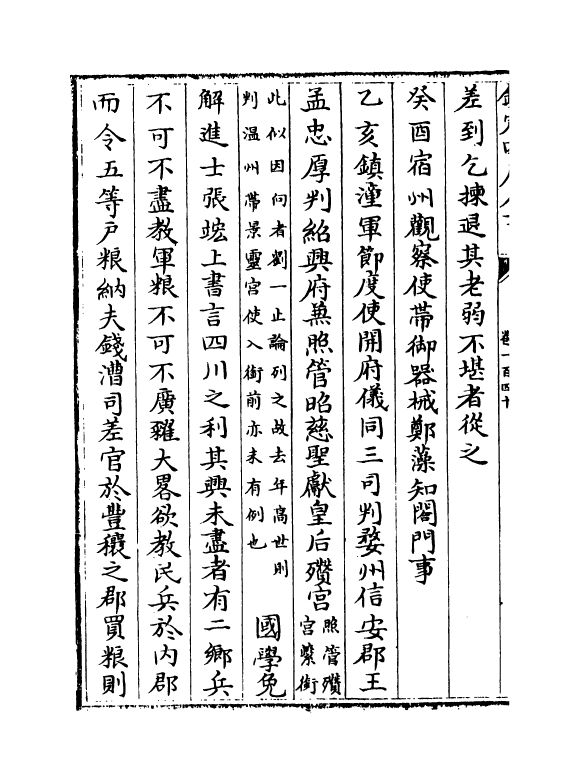 卷一百四十
差到乞揀退其老弱不堪者從之
癸酉宿州觀察使帶御器械鄭藻知閤門事
乙亥鎮潼軍節度使開府儀同三司判婺州信安郡王
孟忠厚判紹興府兼照管昭慈聖獻皇后殯宮
照管殯
宮繫銜
此似因向者劉一止論列之故去年高世則
判溫州帶景靈宮使入銜前亦未有例也
國學免
解進士張上書言四川之利其興未盡者有二鄉兵
不可不盡教軍粮不可不廣糴大畧欲教民兵於内郡
而令五等戶粮納夫錢漕司差官於豐穰之郡買粮則